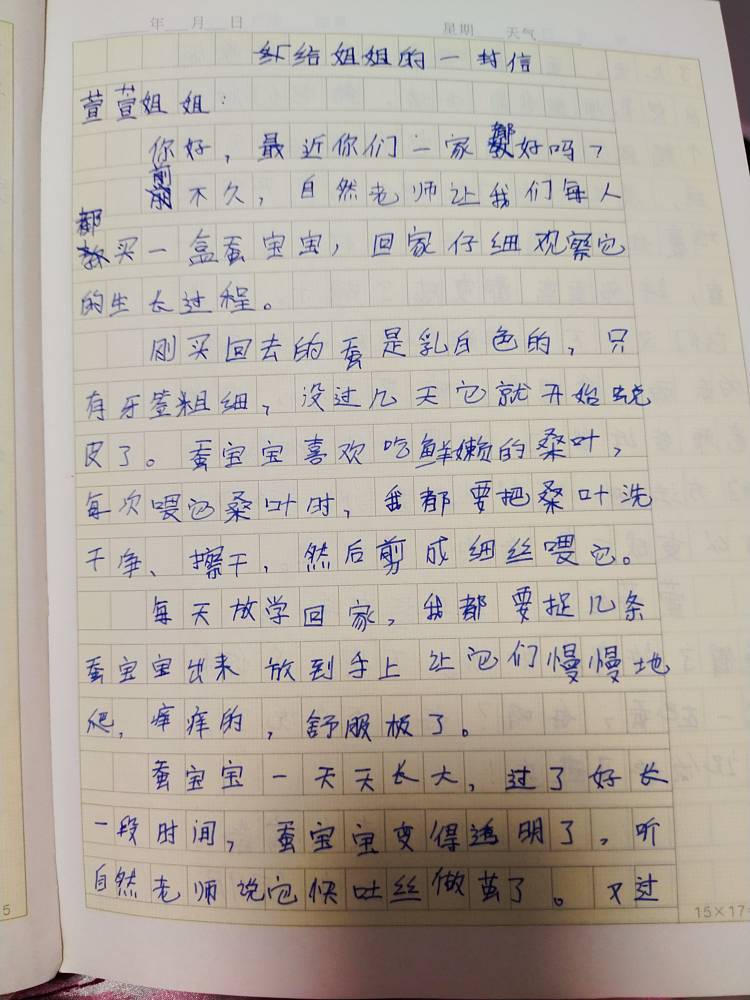 年 月 日 星期 天气
给姐姐的一封信
萱萱姐姐:
你好,最近你们一家都好吗?
前不久,自然老师让我们每人
都买一盒蚕宝宝,回家仔细观察它
的生长过程。
刚买回去的蚕是乳白色的,只
有牙签粗细,没过几天它就开始蜕
皮了。蚕宝宝喜欢吃鲜嫩的桑叶,
每次喂它桑叶时,我都要把桑叶洗
干净、擦干,然后剪成细丝喂它。
每天放学回家,我都要捉几条
蚕宝宝出来放到手上让它们慢慢地
爬,痒痒的,舒服极了。
蚕宝宝一天天长大,过了好长
一段时间,蚕宝宝变得透明了,听
自然老师说它快吐丝做茧了。又过
15×17=